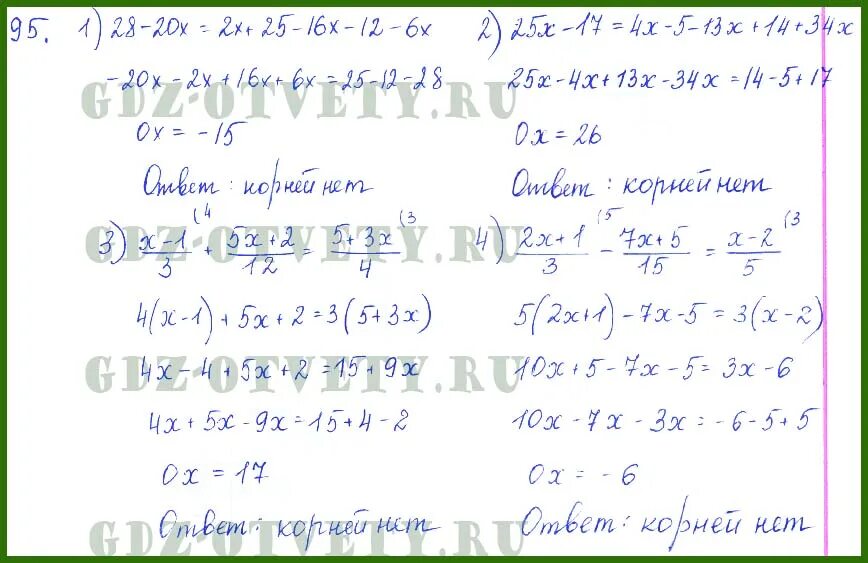 95. 1) 28-20x = 2x+25-16x-12-6x
-20x-2x+16x+6x=25-12-28
0x = -15
Ответ: корней нет
2) 25x-17=4x-5-13x+14+34x
25x-4x+13x-34x=14-5+17
0x=26
Ответ: корней нет
3) x-1/3 (4 + 5x+2/12 = 5+3x/4 (3
4(x-1)+5x+2=3(5+3x)
4x-4+5x+2=15+9x
4x+5x-9x=15+4-2
0x = 17
Ответ: корней нет
4) 2x+1/3 (5 - 7x+5/15 = x-2/5 (3
5(2x+1)-7x-5=3(x-2)
10x+5-7x-5=3x-6
10x-7x-3x=-6-5+5
0x=-6
Ответ: корней нет
GDZ-OTVETY.RU
GDZ-OTVETY.RU
GDZ-OTVETY.RU
GDZ-OTVETY.RU